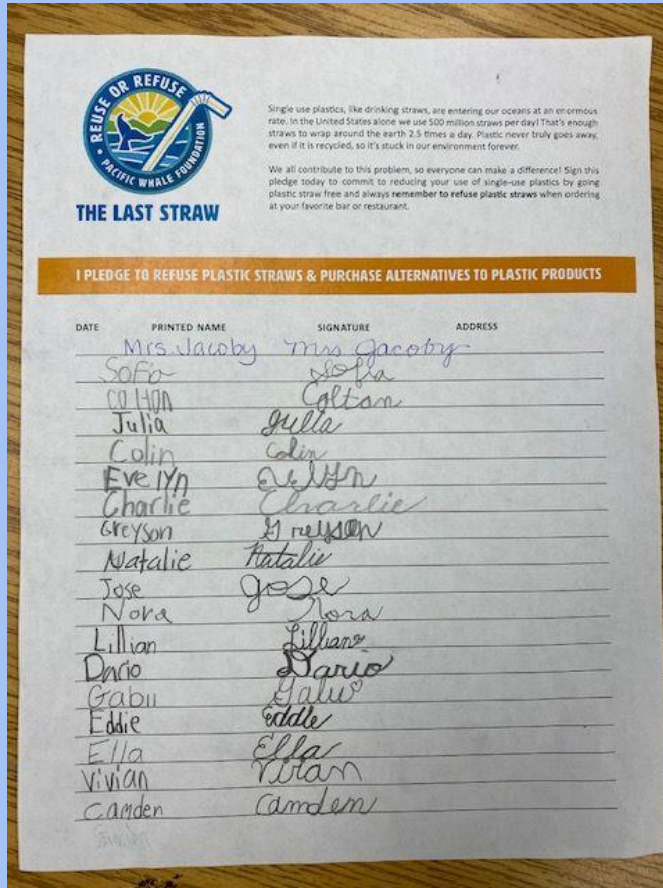 REUSE OR REFUSE
PACIFIC WHALE FOUNDATION
THE LAST STRAW
Single use plastics, like drinking straws, are entering our oceans at an enormous
rate. In the United States alone we use 500 million straws per day! That's enough
straws to wrap around the earth 2.5 times a day. Plastic never truly goes away,
even if it is recycled, so it's stuck in our environment forever.
We all contribute to this problem, so everyone can make a difference! Sign this
pledge today to commit to reducing your use of single-use plastics by going
plastic straw free and always remember to refuse plastic straws when ordering
at your favorite bar or restaurant.
I PLEDGE TO REFUSE PLASTIC STRAWS & PURCHASE ALTERNATIVES TO PLASTIC PRODUCTS
DATE PRINTED NAME SIGNATURE ADDRESS
Mrs. Jacoby Mrs Jacoby
Sofia Sofia
Colton Colton
Julia Julia
Colin Colin
Evelyn Evelyn
Charlie Charlie
Greyson Greyson
Natalie Natalie
Jose Jose
Nora Nora
Lillian Lillian
Dario Dario
Gabii
Eddie Eddie
Ella Ella
Vivian
Camden Camden